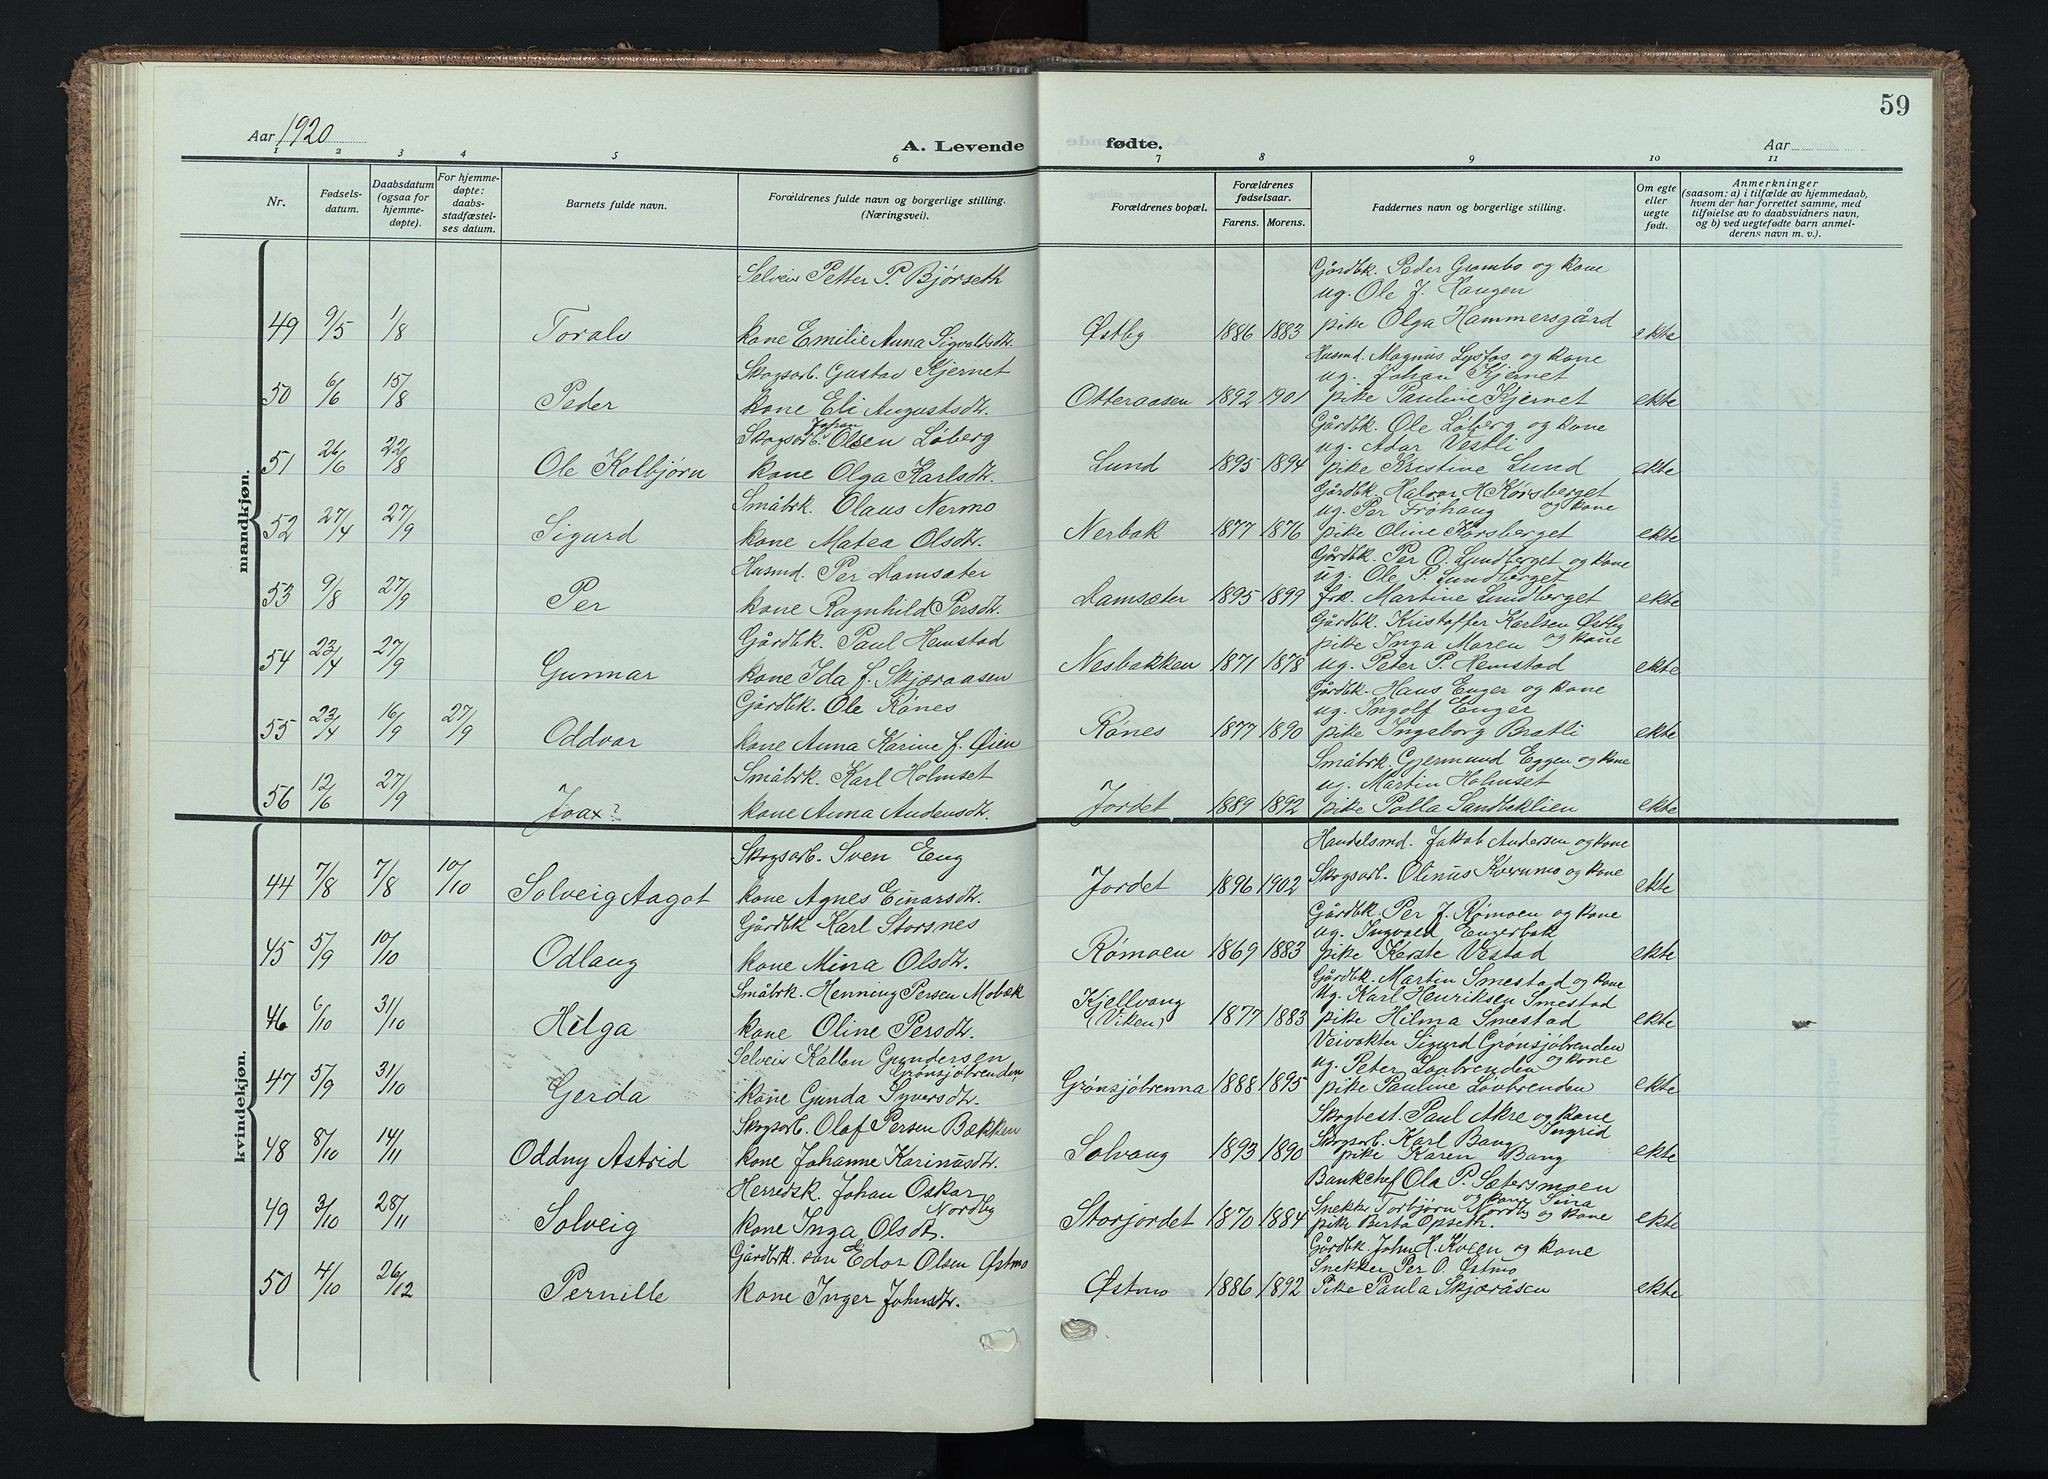 59
Aar 1920
A. Levende fødte.
Aar
1 2 3 4 5 6 7 8 9 10 11
Nr.
Fødsels-
datum.
Daabsdatum
(ogsaa for
hjemme-
døpte).
For hjemme-
døpte:
daabs-
stadfæstel-
ses datum.
Barnets fulde navn.
Forældrenes fulde navn og borgerlige stilling.
(Næringsvei).
Forældrenes bopæl.
Forældrenes
fødselsaar.
Farens. Morens.
Faddernes navn og borgerlige stilling.
Om egte
eller
uegte
født.
Anmerkninger
(saasom: a) i tilfælde av hjemmedaab,
hvem der har forrettet samme, med
tilføielse av to daabsvidners navn,
og b) ved uegtefødte barn anmel-
derens navn m. v.).
mandkjøn.
Selveier Petter P. Bjørseth
Gårdbk. Peder Grambo og kone
ug. Ole J. Haugen
49 9/5 1/8 Toralv kone Emilie Anna Sigvaldsdt. Østby 1886 1883 pike Olga Hammersgård ekte
Skogsarb. Gustav Kjernet
Husmd. Magnus Lysfos og kone
ug. Johan Kjernet
50 6/6 15/8 Peder kone Eli Augustsdt. Otteraasen 1892 1901 pike Pauline Kjernet ekte
Skogsarb. Johan Olsen Løberg
Gårdbk. Ole Løberg og kone
ug. Adar Vestli
51 26/6 22/8 Ole Kolbjørn kone Olga Karlsdt. Lund 1895 1894 pike Kristine Lund ekte
Småbrk. Olaus Nermo
Gårdbk. Halvor H. Korsberget
ug. Per Frøhaug og kone
52 27/4 27/9 Sigurd kone Matea Olsdt. Nerbak 1877 1876 pike Oline Korsberget ekte
Husmd. Per Damsæter
Gårdbk. Per O. Lundberget og kone
ug. Ole P. Lundberget
53 9/8 27/9 Per kone Ragnhild Persdt. Damsæter 1895 1899 frk. Martine Lundberget ekte
Gårdbk. Paul Hemstad
Gårdbk. Kristoffer Karlsen Østby
pike Inga Maren og kone
54 23/4 27/9 Gunnar kone Ida f. Skjæraasen Nesbakken 1871 1878 ug. Peter P. Hemstad ekte
Gårdbk. Ole Rønes
Gårdbk. Hans Enger og kone
ug. Ingolf Enger
55 23/4 16/9 27/9 Oddvar kone Anna Karine f. Øien Rønes 1877 1890 pike Ingeborg Bratli ekte
Småbrk. Karl Holmset
Småbrk. Gjermund Eggen og kone
ug. Martin Holmset
56 12/6 27/9 Joax? kone Anna Andensdt. Jordet 1889 1892 pike Polla Sandbæklien ekte
kvindekjøn.
Skogsarb. Sven Eng
Handelsmd. Jakob Andersen og kone
Skogsarb. Olinus Kverumo og kone
44 7/8 7/8 10/10 Solveig Aagot kone Agnes Einarsdt. Jordet 1896 1902 ekte
Gårdbk Karl Storsnes
Gårdbk. Per J. Rømoen og kone
ug. Ingvald Engerbak
45 5/9 10/10 Odlaug kone Mina Olsdt. Rømoen 1869 1883 pike Kerste Vestad ekte
Småbrk. Henning Persen Mobæk
Gårdbk. Martin Smestad og kone
Ug. Karl Henriksen Smestad
46 6/10 31/10 Helga kone Oline Persdt. Kjellvang (Viken) 1877 1883 pike Hilma Smestad ekte
Selveier Kallan Gundersen Grønsjøbrenden
Veivokter Sigurd Grønsjøbrenden
ug. Peter Løvbrenden og kone
47 5/9 31/10 Gerda kone Gunda Syversdt. Grønsjøbrenna 1888 1895 pike Pauline Løvbrenden ekte
Skogsarb. Olaf Persen Bækken
Skogbest. Paul Akre og kone
Skogsarb. Karl Bang Ingrid
48 8/10 14/11 Oddny Astrid kone Johanne Karinusdt. Solvang 1893 1890 pike Karen Bang ekte
Herredsk. Johan Oskar Nordby
Bankchef Ola P. Sætersmoen
og kone Sina
Snekker Torbjørn Nordby og kone
49 3/10 28/11 Solveig kone Inga Olsdt. Storjordet 1870 1884 pike Berta Opseth. ekte
Gårdbrk. søn Edor Olsen Østmo
Gårdbk. John H. Kveen og kone
Snekker Per O. Østmo
50 4/10 26/12 Pernille kone Inger Johnsdt. Østmo 1886 1892 Pike Paula Skjæråsen ekte